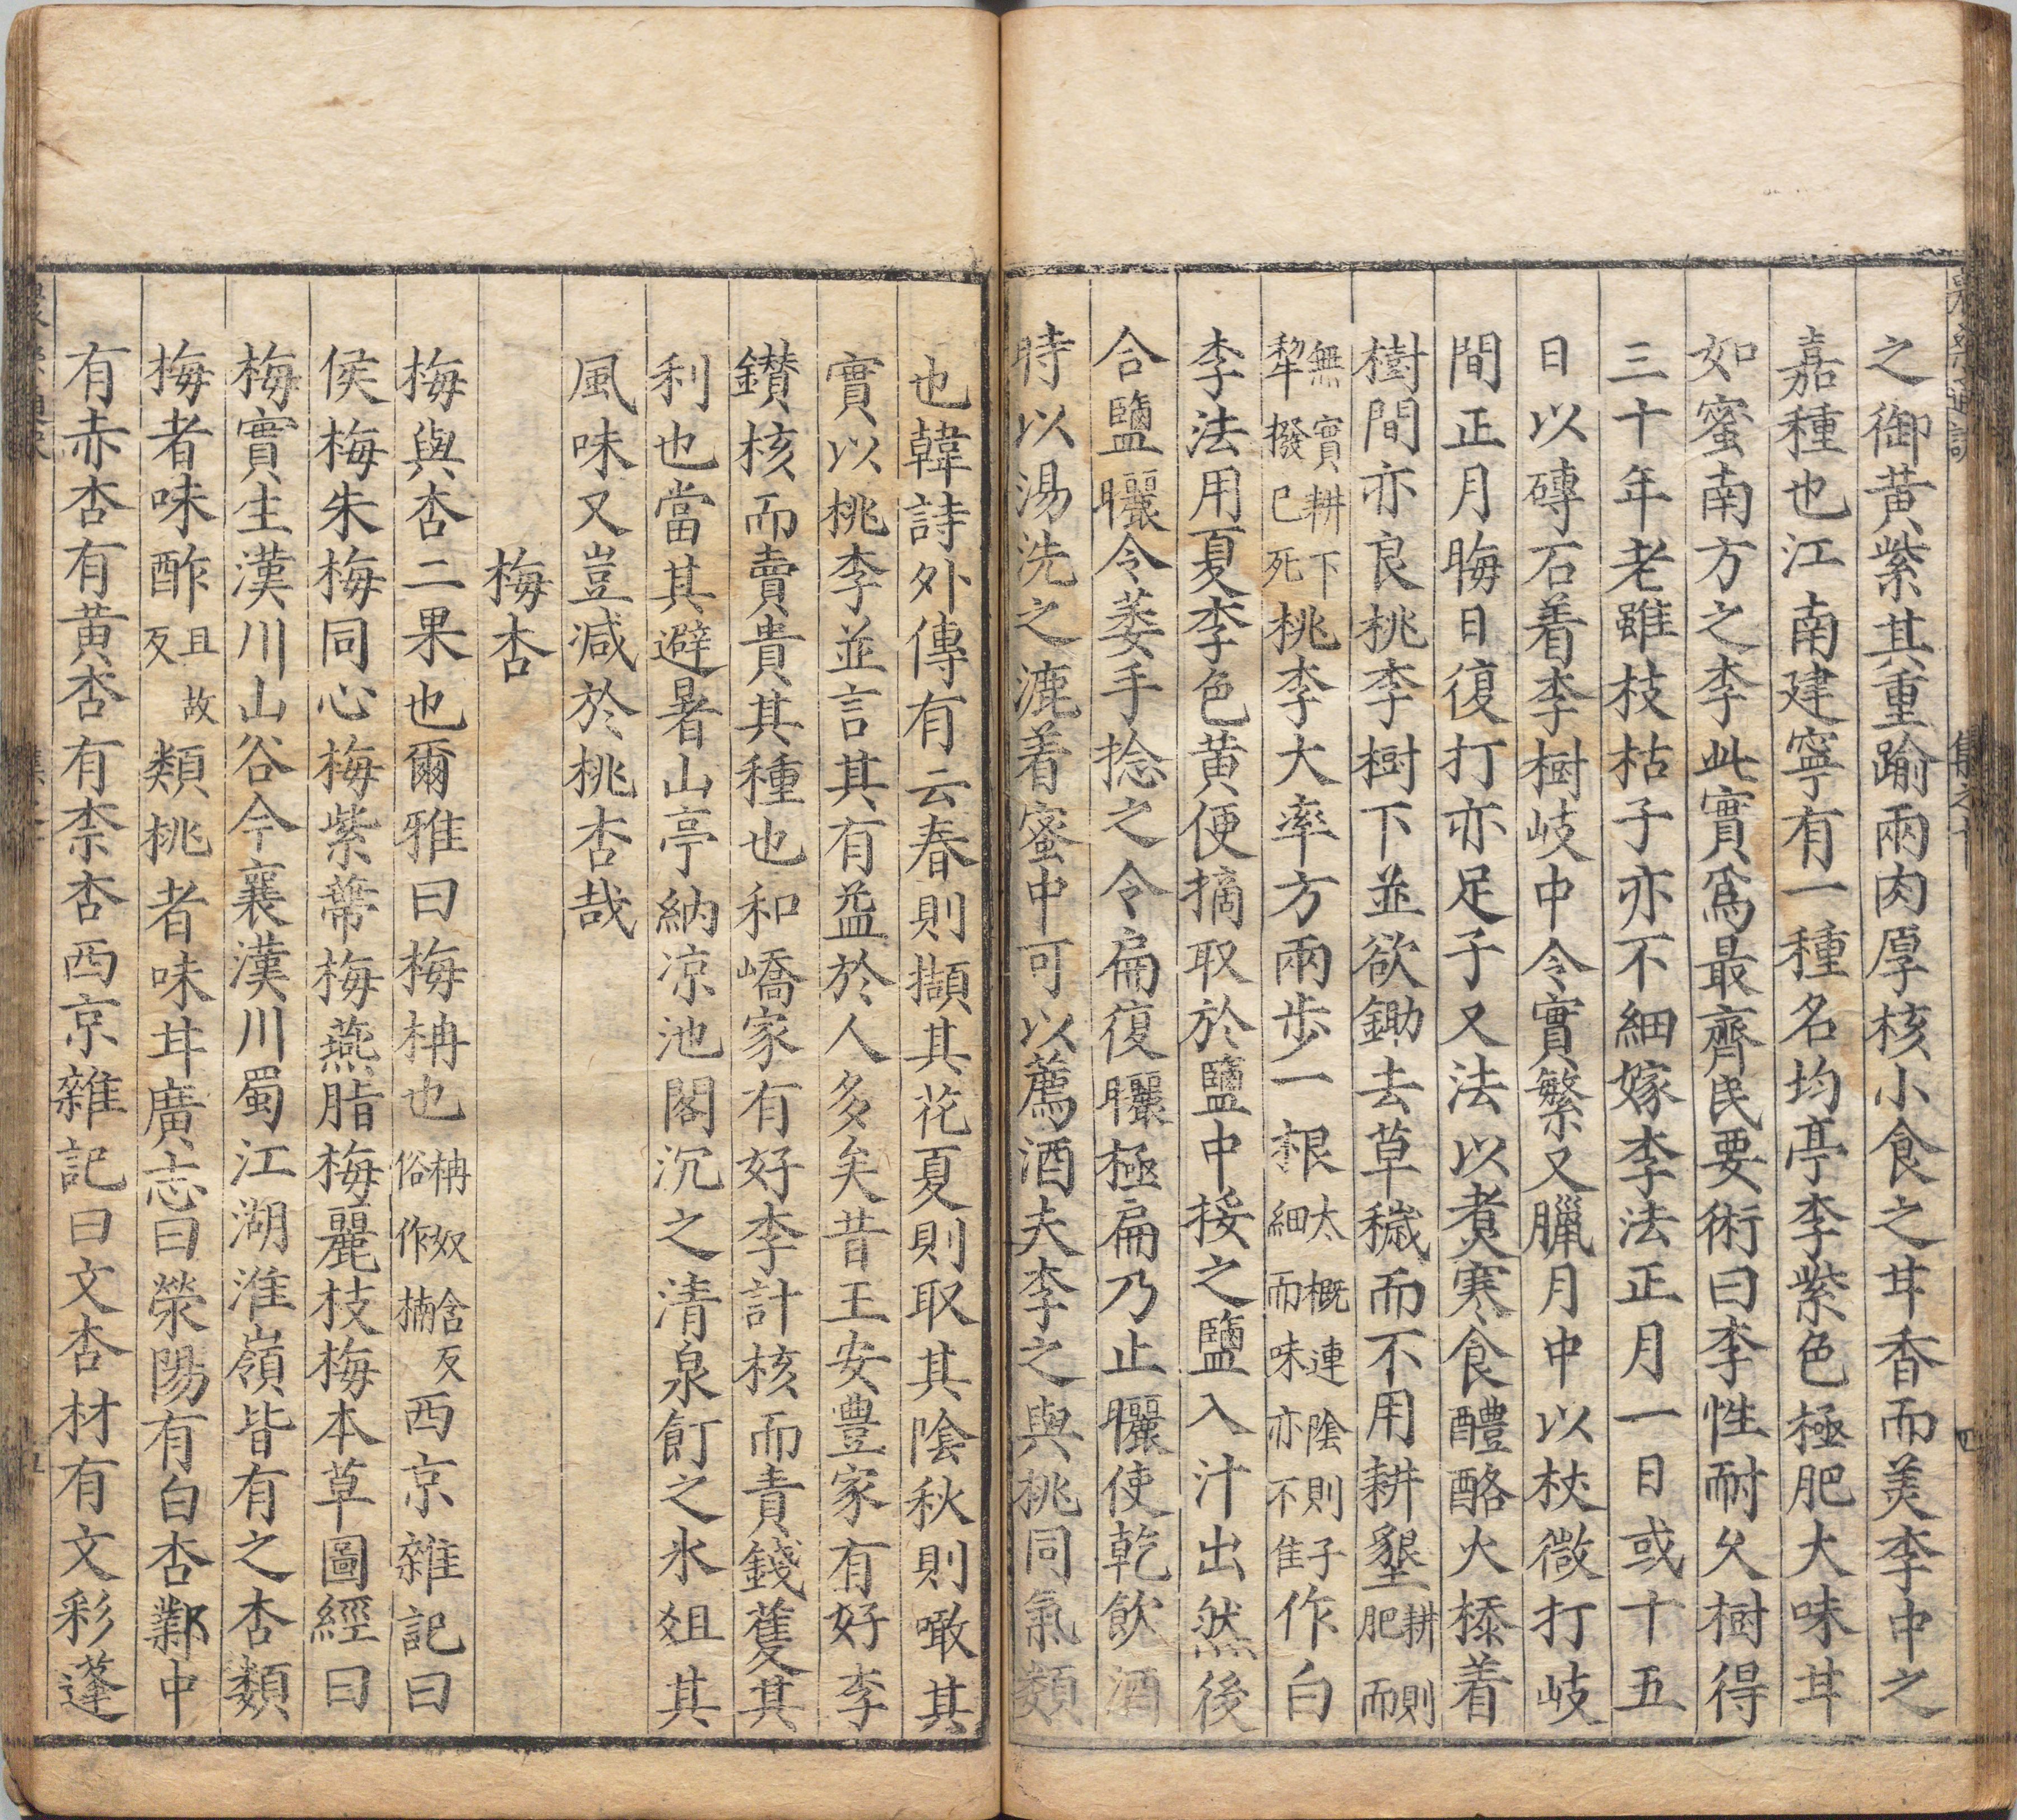 之御黃紫其重踰兩肉厚核小食之甘香而美李中之
嘉種也江南建寧有一種名均亭李紫色極肥大味甘
如蜜南方之李此實爲最齊民要術曰李性耐久樹得
三十年老雖枝枯子亦不細嫁李法正月一日或十五
日以磚石着李樹岐中令實繁又臘月中以杖微打岐
間正月晦日復打亦足子又法以煮寒食醴酪火㮇着
樹間亦良桃李樹下並欲鋤去草穢而不用耕墾耕則肥而
無實耕下犂撥已死桃李大率方兩步一根太概連陰則子細而味亦不佳作白
李法用夏李色黃便摘取於鹽中挼之鹽入汁出然後
合鹽曬令萎手捻之令扁復曬極扁乃止曬使乾飲酒
時以湯洗之漉着蜜中可以薦酒夫李之與桃同氣類
也韓詩外傳有云春則擷其花夏則取其陰秋則噉其
實以桃李並言其有益於人多矣昔王安豐家有好李
鑽核而賣貴其種也和嶠家有好李計核而責錢蓋其
利也當其避暑山亭納凉池閣沉之清泉飣之氷俎其
風味又豈减於桃杏哉
梅杏
梅與杏二果也爾雅曰梅柟也柟奴含反俗作楠西京雜記曰
侯梅朱梅同心梅紫蒂梅燕脂梅麗枝梅本草圖經曰
梅實生漢川山谷今襄漢川蜀江湖淮嶺皆有之杏類
梅者味酢且故反類桃者味甘廣志曰滎陽有白杏鄴中
有赤杏有黃杏有柰杏西京雜記曰文杏材有文彩蓬